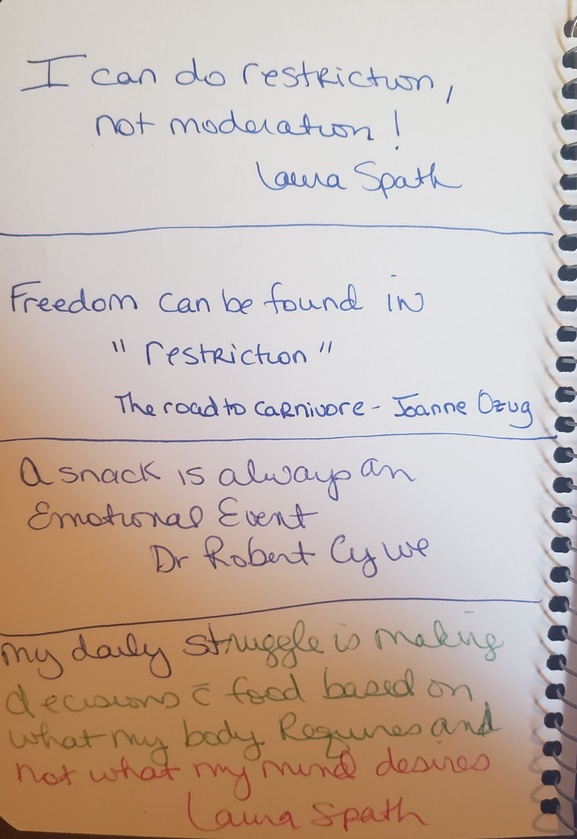 I can do restriction,
not moderation!
Laura Spath
Freedom can be found in
"restriction"
The road to carnivore - Joanne Ozug
A snack is always an
Emotional Event
Dr Robert Cywe
my daily struggle is making
decisions c̄ food based on
what my body Requires and
not what my mind desires
Laura Spath